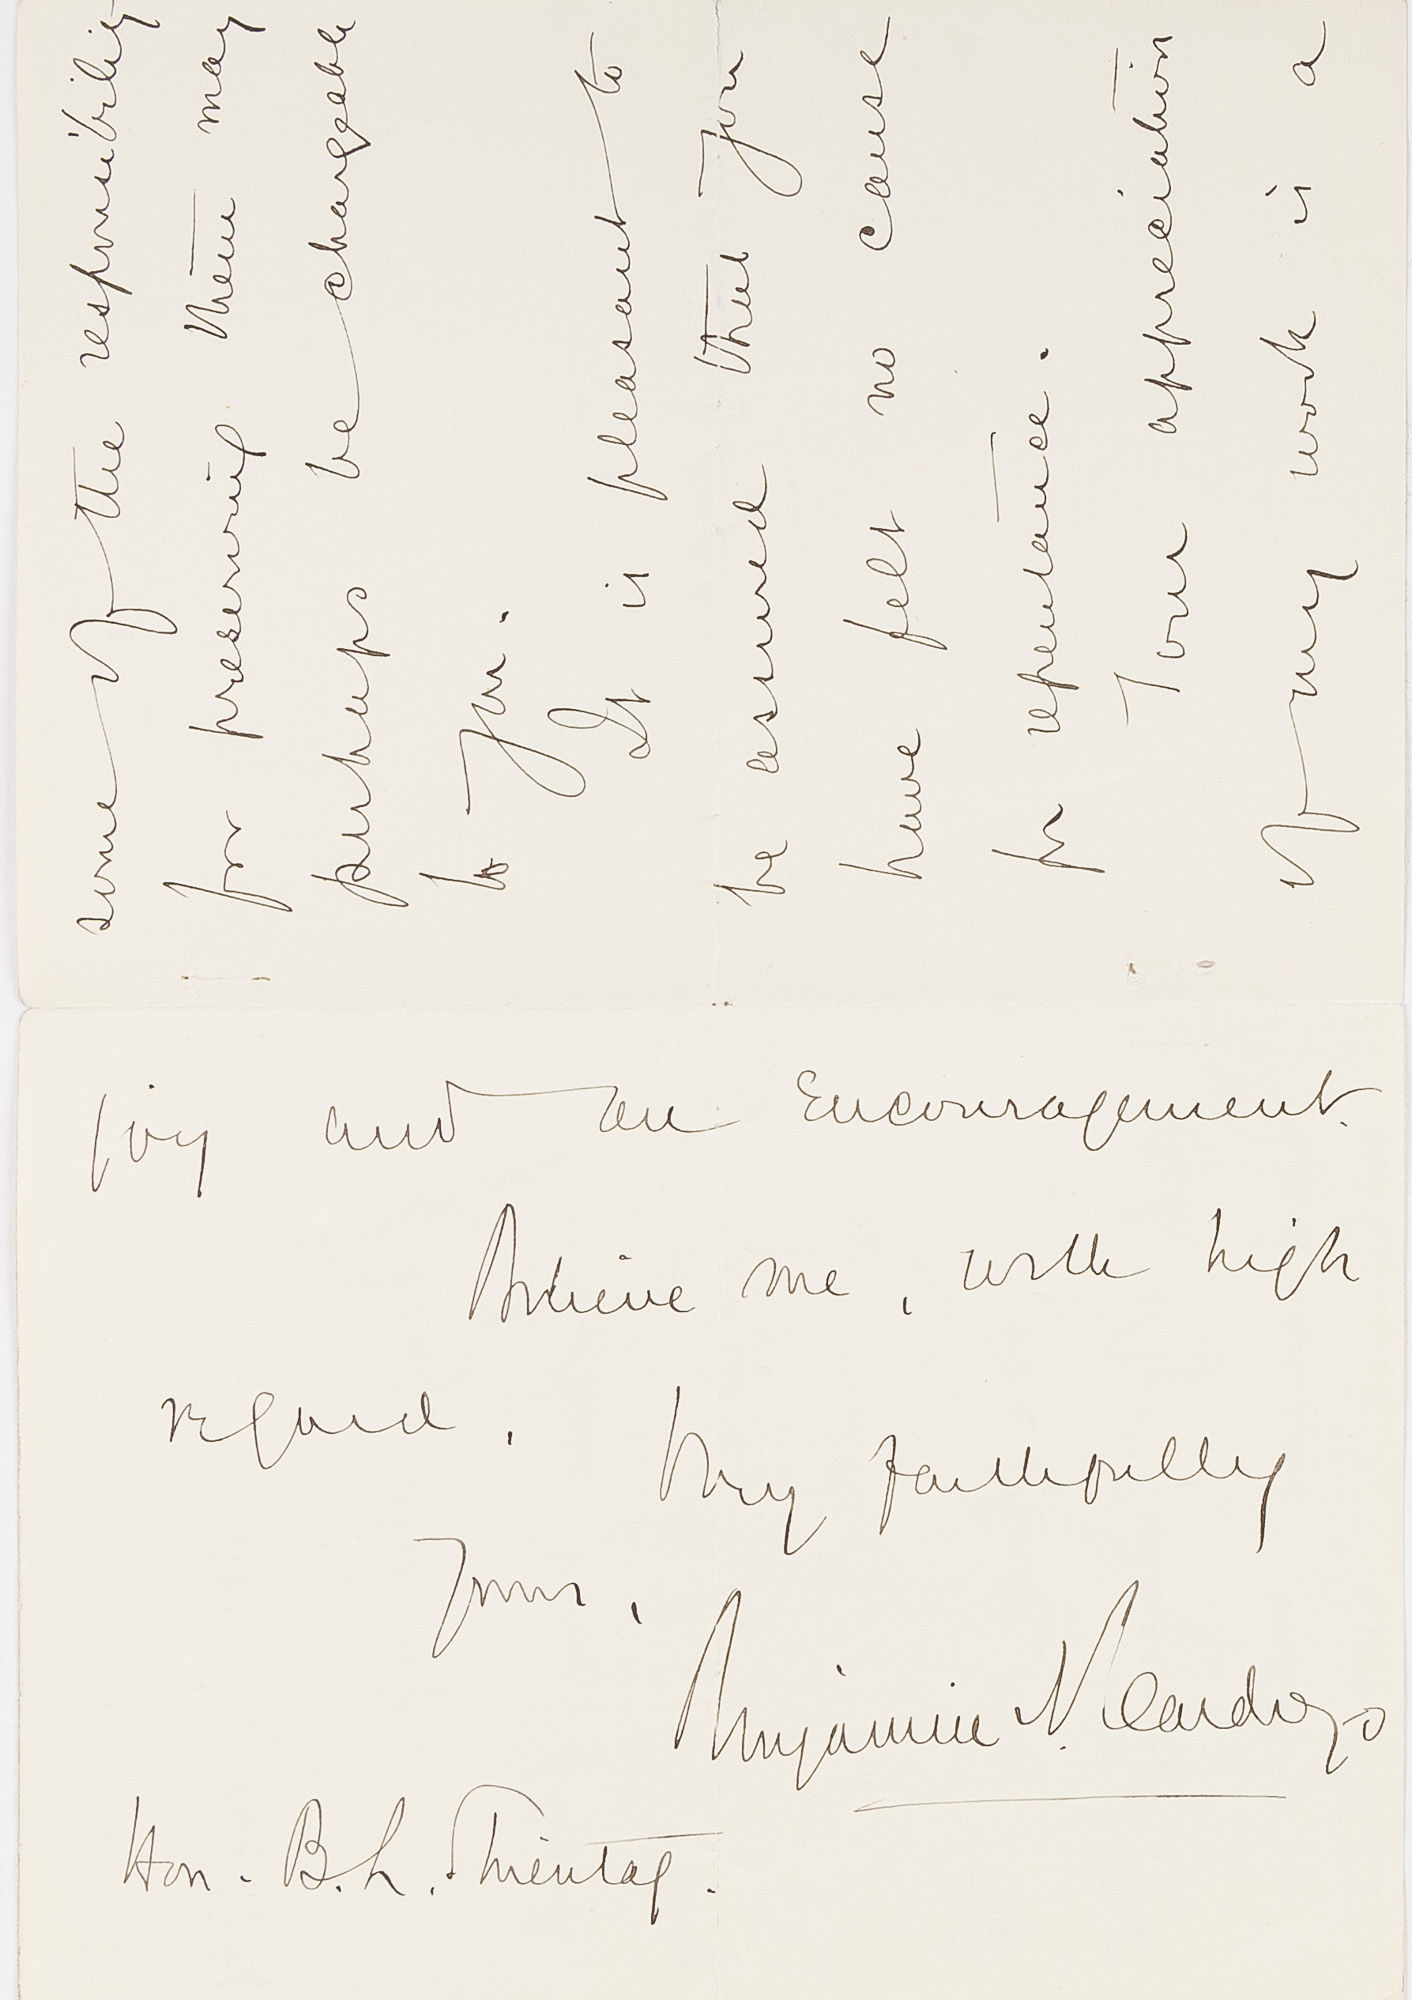 some of the responsibility
for preserving them may
perhaps be chargeable
to you.
It is pleasant to
be assured that you
have felt no cause
for repentance.
Your appreciation
of my work is a
joy and an encouragement.
Believe me, with high
regard, Very faithfully
yours,
Benjamin N. Cardozo
Hon. B. L. Shientag.